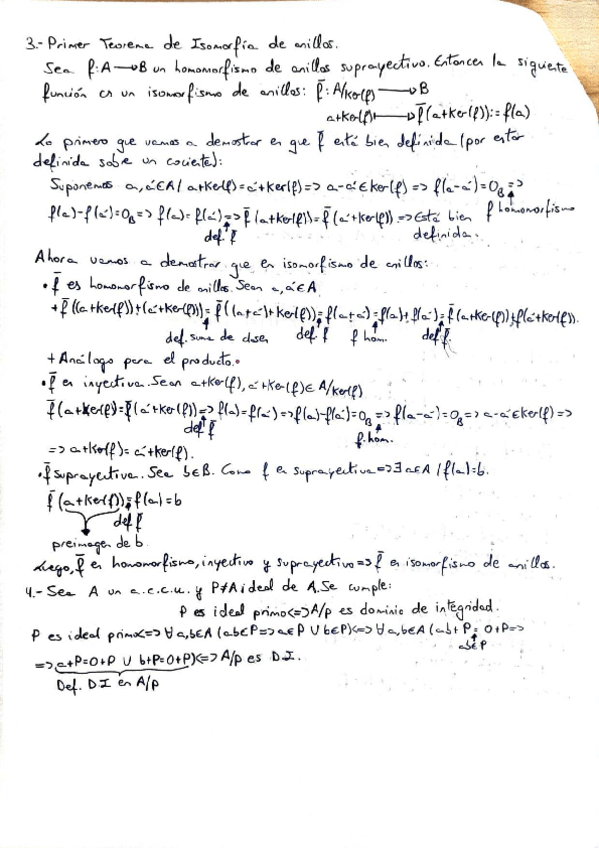 3.- Primer Teorema de Isomorfía de anillos.
Sea f: A → B un homomorfismo de anillos suprayectivo. Entonces la siguiente
función es un isomorfismo de anillos: f̄: A/Ker(f) → B
a+Ker(f) ↦ f̄(a+Ker(f)):=f(a)
Lo primero que vamos a demostrar es que f̄ está bien definida (por estar
definida sobre un cociente):
Suponemos a, a'∈A / a+Ker(f)=a'+Ker(f) => a-a'∈Ker(f) => f(a-a')=0_B =>
f(a)-f(a')=0_B => f(a)=f(a') => f̄(a+Ker(f))=f̄(a'+Ker(f)) => Está bien f homomorfismo
def. f̄ definida.
Ahora vamos a demostrar que es isomorfismo de anillos:
• f̄ es homomorfismo de anillos. Sean a, a'∈A
+ f̄((a+Ker(f))+(a'+Ker(f)))=f̄((a+a')+Ker(f))=f(a+a')=f(a)+f(a')=f̄(a+Ker(f))+f̄(a'+Ker(f)).
def. suma de clases def. f̄ f hom. def f̄.
+ Análogo para el producto.
• f̄ es inyectiva. Sean a+Ker(f), a'+Ker(f)∈A/Ker(f)
f̄(a+Ker(f))=f̄(a'+Ker(f)) => f(a)=f(a') => f(a)-f(a')=0_B => f(a-a')=0_B => a-a'∈Ker(f) =>
def f̄ f. hom.
=> a+Ker(f)=a'+Ker(f).
• f̄ suprayectiva. Sea b∈B. Como f es suprayectiva => ∃ a∈A / f(a)=b.
f̄(a+Ker(f))=f(a)=b
def f̄
preimagen de b
Luego, f̄ es homomorfismo, inyectivo y suprayectivo => f̄ es isomorfismo de anillos.
4.- Sea A un a.c.c.u. y P≠A ideal de A. Se cumple:
P es ideal primo <=> A/P es dominio de integridad.
P es ideal primo <=> ∀ a,b∈A (ab∈P => a∈P ∪ b∈P) <=> ∀ a,b∈A (ab+P = 0+P =>
ab∈P
=> a+P=0+P ∪ b+P=0+P) <=> A/P es D.I.
Def. D.I en A/P